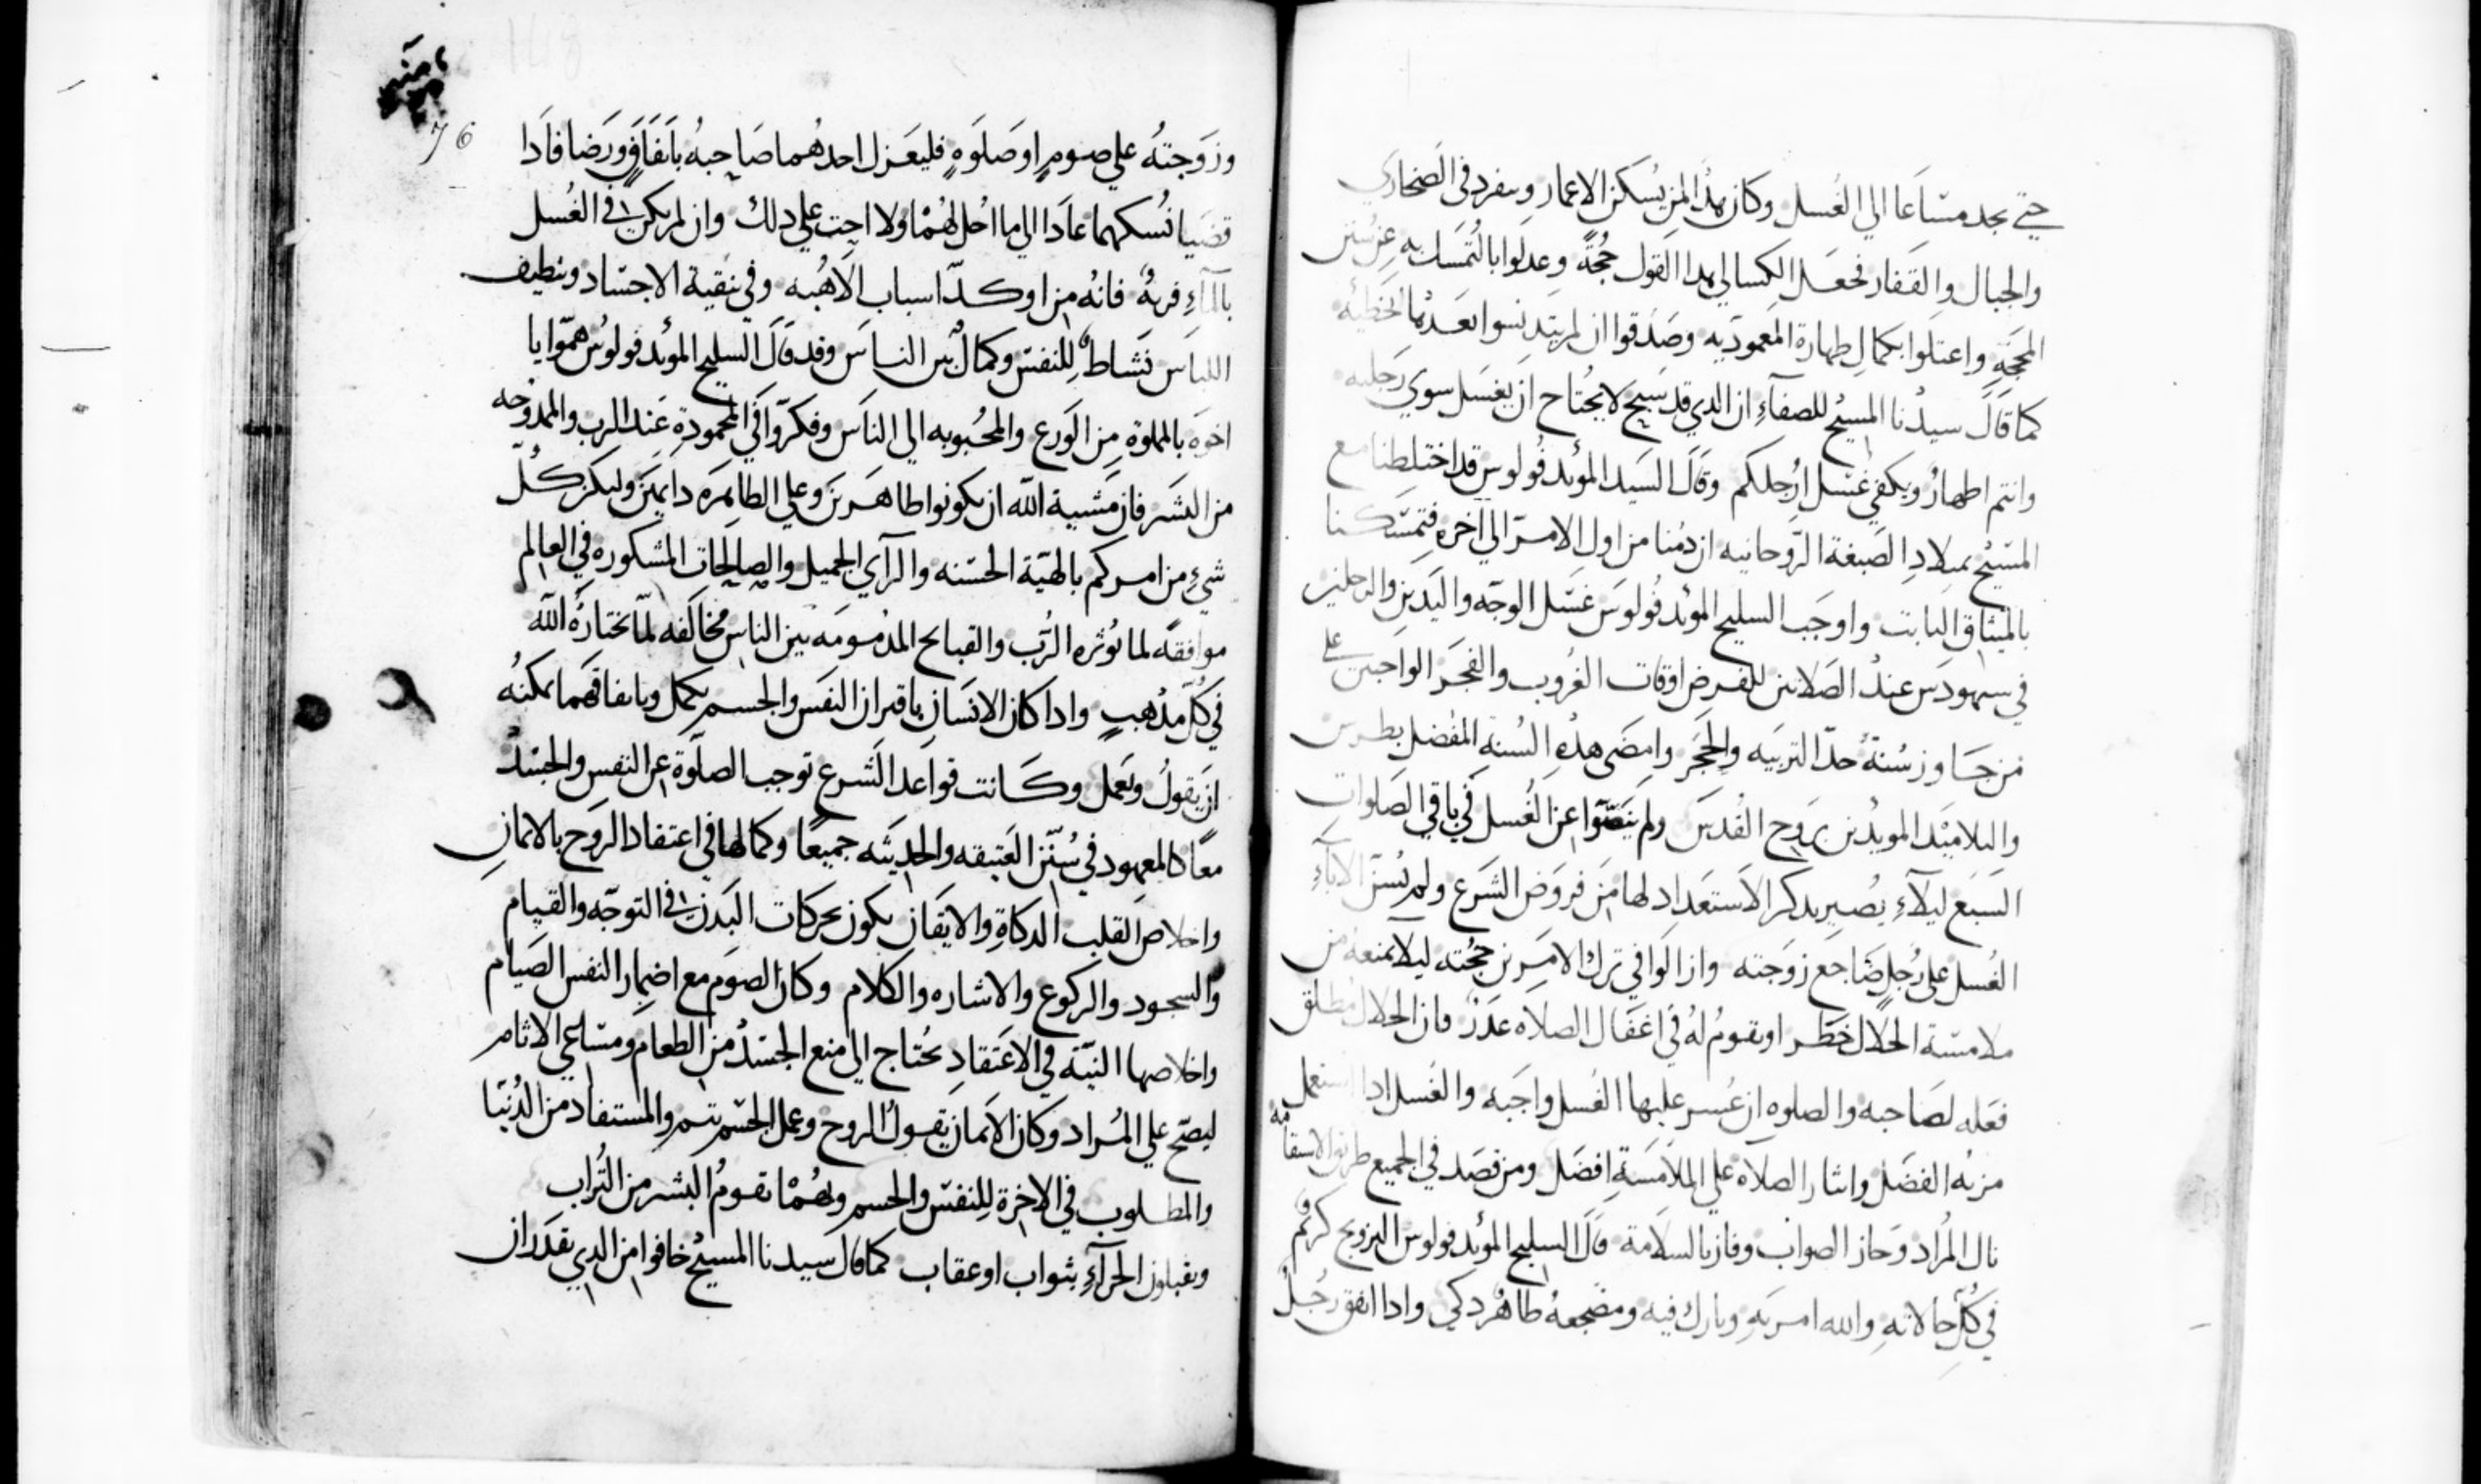 حتي يجد متساعا الي الغسل وكان هذا لمن يسكن الاعمار وينفرد في الصحاري
والجبال والقفار فجعل الكسالي هذا القول حجةً وعدلوا بالتمسك به عن سنن
المحجة واعتلوا بكمال طهارة المعموديه وصدقوا ان لم يتدنسوا بعدها بالخطيه
كما قال سيدنا المسيح للصفاء ان الدي قد سبح لا يحتاج ان يغسل سوي رجليه
وانتم اطهار ويكفي غسل ارجلكم وقال السيد المؤيد فولوس قد اختلطنا مع
المسيح بميلاد الصبغة الروحانيه ان دمنا من اول الامر الي اخره فتمسكنا
بالميثاق الثابت واوجب السليح المؤيد فولوس غسل الوجه واليدين والرجلين
في عند الصلاتين للفرض اوقات الغروب والفجر الواجبتين علي
من جاوز سنة حد التربيه والحجر وامضي هذه السنة المفضل بطرس
والتلاميد المويدين بروح القدس ولم ينصوا عن الغسل في باقي الصلوات
السبع ليلاء يصير بدكر الاستعداد لها من فروض الشرع ولم يسن الاباء
الغسل علي رجل ضاجع زوجته وازالوا في ترك الامرين حجته ليلا تمنعه من
ملامسة الحلال خطر او يقوم له في اغفال الصلاه عدر فان الحلال مطلق
فعله لصاحبه والصلوه ان عسر عليها الغسل واجبه والغسل ادا استعمل
مزيه الفضل وايثار الصلاه علي الملامسة افضل ومن قصد في الجميع طريق الاستقامه
نال المراد وحاز الصواب وفاز بالسلامة قال السليح المؤيد فولوس التزويج كريم
في كل حالاته والله امر به وبارك فيه ومضجعه طاهر دكي وادا اتفق رجل
76
وزوجته علي صوم او صلوة فليعزل احدهما صاحبه باتفاق ورضا فادا
قضيا نسكهما عادا الي ما احل لهما ولا احتت علي دلك وان لم يكن في الغسل
بالماء فانه من اوكد اسباب الاهبه وفي تنقية الاجساد وتنظيف
اللباس نشاط للنفس وكمال بين الناس وقد قال السليح المؤيد فولوس همّوا يا
اخوه بالمملوة من الورع والمحبوبه الي الناس وفكروا في المحمودة عند الرب والممدوحه
من البشر فان مشية الله ان يكونوا طاهرين وعلي الطاهره دايمين وليكن كل
شيء من امركم بالهية الحسنه والراي الجميل والصالحات المشكوره في العالم
موافقه لما يؤثره الرب والقبايح المدمومه بين الناس مخالفه لما يختاره الله
في كل مدهب وادا كان الانسان باقتران النفس والجسم يكمل وباتفاقهما يمكنه
ان يقول ويعمل وكانت قواعد الشرع توجب الصلوة عن النفس والجسد
معا كالمعهود في سنن العتيقه والحديثه جميعا وكمالها في اعتقاد الروح بالايمان
واخلاص القلب الدكاة والايقان يكون بحركات البدن في التوجه والقيام
والسجود والركوع والاشاره والكلام وكان الصوم مع اضمار النفس الصيام
واخلاصها النية في الاعتقاد يحتاج الي منع الجسد من الطعام ومساعي الاثام
ليصح علي المراد وكان الايمان يقول الروح وعمل الجسم يتم والمستفاد من الدنيا
والمطلوب في الاخرة للنفس والجسم وبهما تقوم البشر من التراب
ويقبلون الجزاء بثواب او عقاب كما قال سيدنا المسيح خافوا من الدي يقدر ان